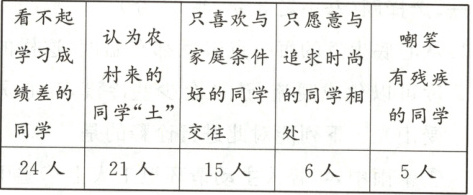 看不起
学习成
绩差的
同学
认为农
村来的
同学“土”
只喜欢与
家庭条件
好的同学
交往
只愿意与
追求时尚
的同学相
处
嘲笑
有残疾
的同学
24人 21人 15人 6人 5人